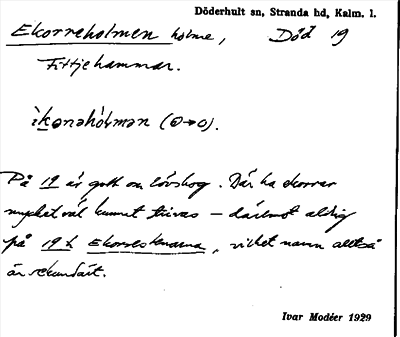 Döderhult sn, Stranda hd, Kalm. l.
Ekorreholmen holme, Död 19
Fittjehammar.
ìkərəhólmən (ɵ→o).
På 19 är gott om lövskog. Där ha ekorrar
mycket väl kunnat trivas – däremot aldrig
på 19 x Ekorreskenorna, vilket namn alltså
är sekundärt.
Ivar Modéer 1929